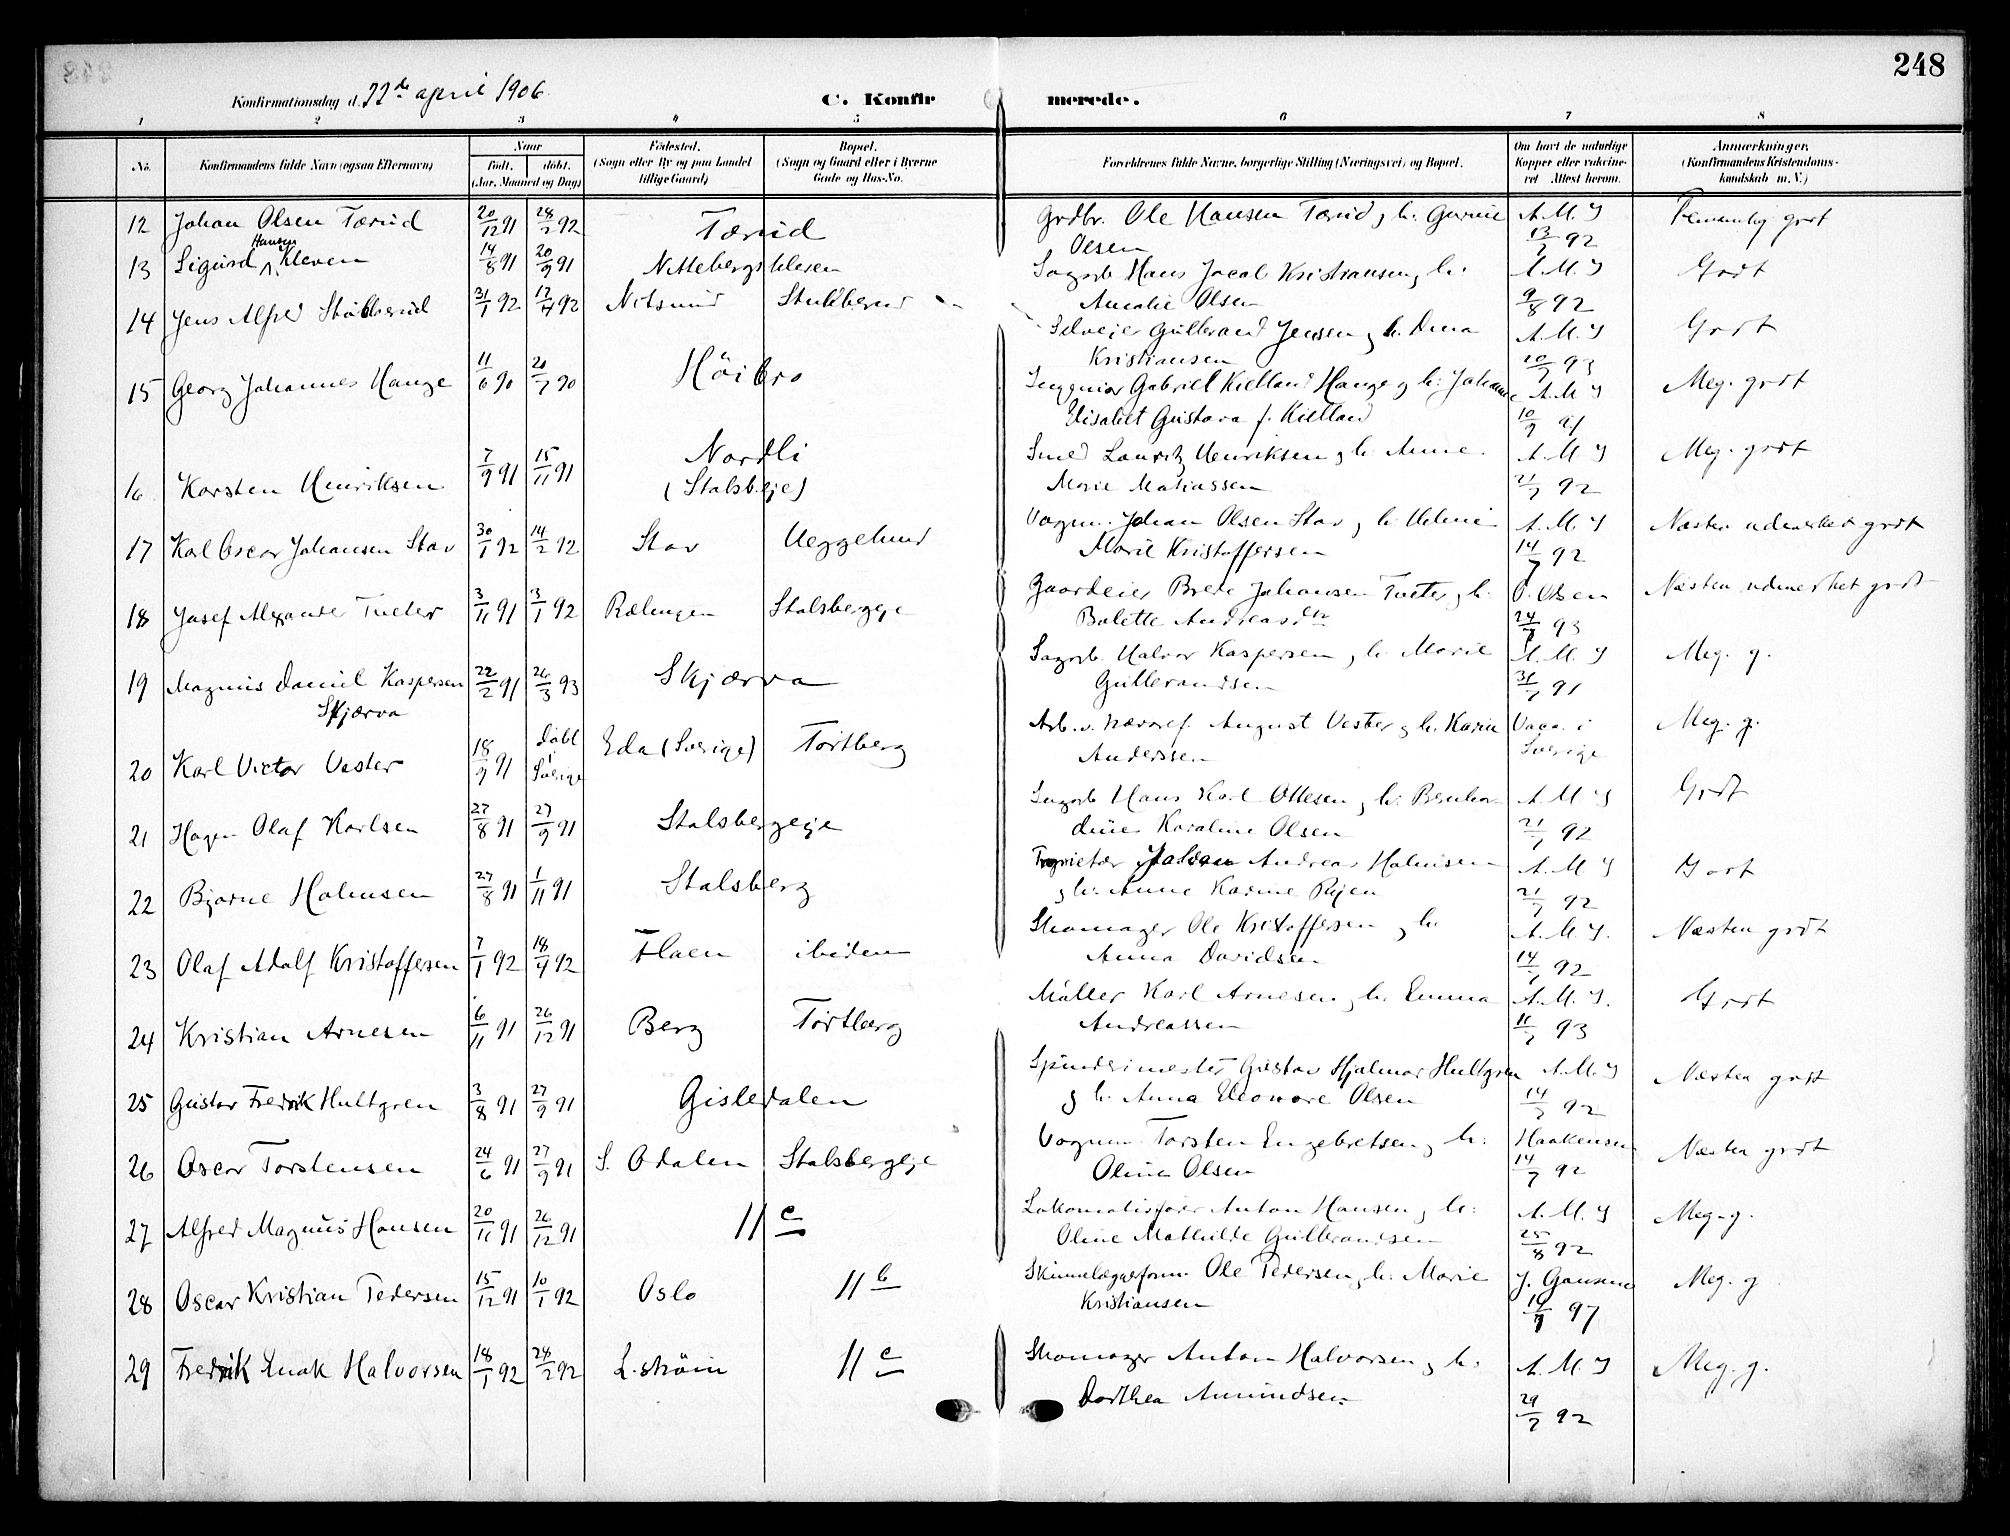 248
Konfirmationsdag d. 22de april 1906.
C. Konfirmerede.
1 2 3 4 5 6 7 8
No. Konfirmandens fulde Navn (ogsaa Efternavn) Naar født. døbt. (Aar, Maaned og Dag) Fødested. (Sogn eller By og paa Landet tillige Gaard) Bopæl. (Sogn og Gaard eller i Byerne Gade og Hus-No. Forældrenes fulde Navne, borgerlige Stilling (Næringsvei) og Bopæl. Om havt de naturlige Kopper eller vakcineret. Attest herom. Anmærkninger. (Konfirmandens Kristendomskundskab m. V.)
12 Johan Olsen Tærud 20/12 91 28/2 92 Tærud Grdbr. Ole Hansen Tærud og h. Gurine Olsen A. M. S 13/7 92 Temmelig godt
13 Sigurd Hansen Kleven 14/8 91 20/9 91 Nittebergs Sagarb. Hans Jacob Kristiansen og h. Amalie Olsen A. M. S 9/8 92 Godt
14 Jens Alfred Stubberud 31/1 92 17/4 92 Nitsund Stubberud Selveier Gulbrand Jensen og h. Dina Kristiansen A. M. S 20/7 93 Godt
15 Georg Johannes Hauge 11/6 90 20/7 90 Höibro Ingeniør Gabriel Kielland Hauge og h. Johanne Elisabet Gustava f. Kielland A. M. S 10/9 91 Meg. godt
16 Karsten Henriksen 7/9 91 15/11 91 Nordli (Stalsb.eje) Smed Lauritz Henriksen og h. Anne Marie Mathiassen A. M. S 21/7 92 Meg. godt
17 Karl Oscar Johansen Stav 30/1 92 14/2 92 Stav Heggelund Vognm. Johan Olsen Stav og h. Helene Marie Kristoffersen A. M. S 14/7 92 Næsten udmerket godt
18 Josef Alexander Tveter 3/11 91 3/1 92 Rælingen Stalsbergeje Gaardeier Brede Johansen Tveter og h. Bolette Andreasdtr O. Olsen 24/7 93 Næsten udmerket godt
19 Magnus Daniel Kaspersen Skjærva 22/2 91 26/3 93 Skjærva Sagarb. Halvor Kaspersen og h. Marie Gulbrandsen A. M. S 31/7 91 Meg. g.
20 Karl Victor Vester 18/9 91 Døbt i Sverige Eda (Sverige) Tortberg Arb. v. August Vester og h. Karin Anderssen Vacc. i Sverige Meg. g.
21 Hagen Olaf Karlsen 27/8 91 27/9 91 Stalsbergeje Sagarb Hans Karl Ottesen og h. Bernhardine Karoline Olsen A. M. S 21/7 92 Godt
22 Bjarne Holmsen 27/8 91 1/11 91 Stalsberg Johan Andreas Holmsen og h. Anne Karine Rejen A. M. S 21/7 92 Godt
23 Olaf Adolf Kristoffersen 7/1 92 18/4 92 Flaen ibidem Skomager Ole Kristoffersen og h. Anna Davidsen A. M. S. 14/7 92 Næsten godt
24 Kristian Arnesen 6/11 91 26/12 91 Berg Tortberg Møller Karl Arnesen og h. Emma Andreassen A. M. S. 11/7 93 Godt
25 Gustav Fredrik Hultgren 3/8 91 27/9 91 Gisledalen Spinderimester Gustav Hjalmar Hultgren og h. Anna Eleonore Olsen A. M. S 14/7 92 Næsten godt
26 Oscar Torstensen 24/6 91 27/9 91 S. Odalen Stalsbergeje Vognm. Torsten Engebretsen og h: Oline Olsen Haakensen 14/7 92 Næsten godt
27 Alfred Magnus Hansen 20/11 91 26/12 91 11 c Lokomotivfører Anton Hansen og h: Oline Mathilde Gulbrandsen A. M. S 25/8 92 Meg. g.
28 Oscar Kristian Pedersen 15/12 91 10/1 92 Oslo 11 b Ole Pedersen og h. Marie Kristiansen 97 Meg. g
29 Fredrik Enok Halvorsen 18/1 92 28/2 92 L.strøm 11 c Skomager Anton Halvorsen og h: Dorthea Amundsen A. M. S 29/7 92 Meg. g.